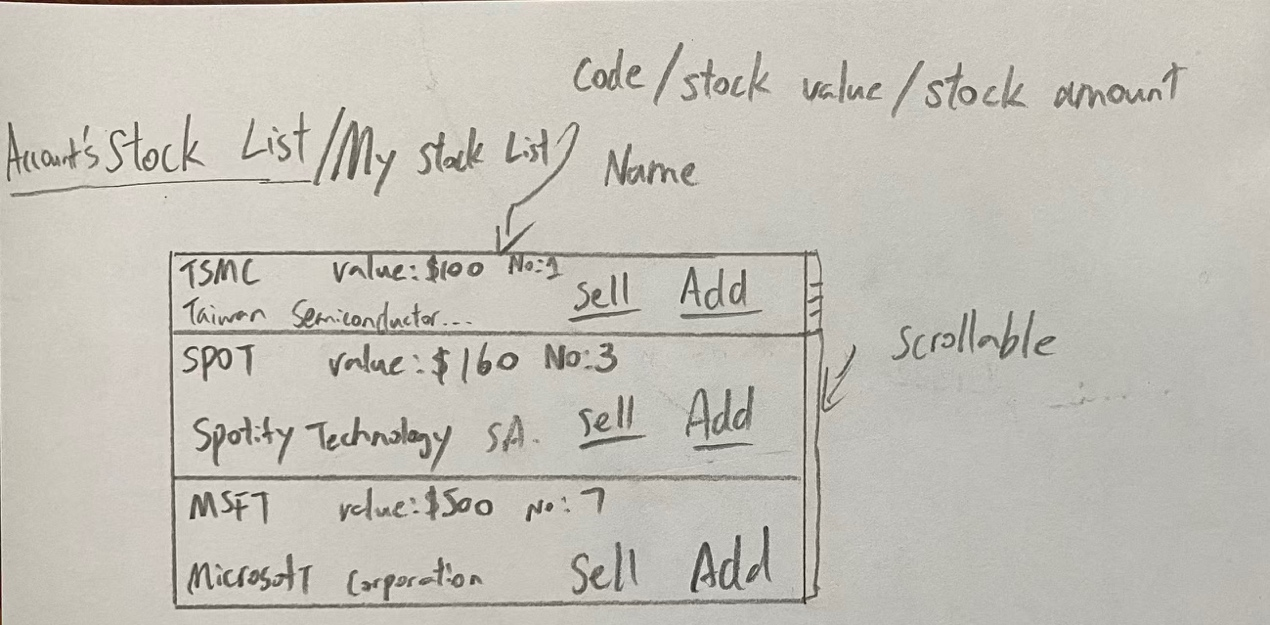 Code/stock value/stock amount
Account's Stock List/My stock List
Name
TSMC value:$100 No:1
Taiwan Semiconductor...
Sell Add
SPOT value:$160 No:3
Spotify Technology S.A. Sell Add
MSFT value:$500 No:7
Microsoft Corporation Sell Add
Scrollable